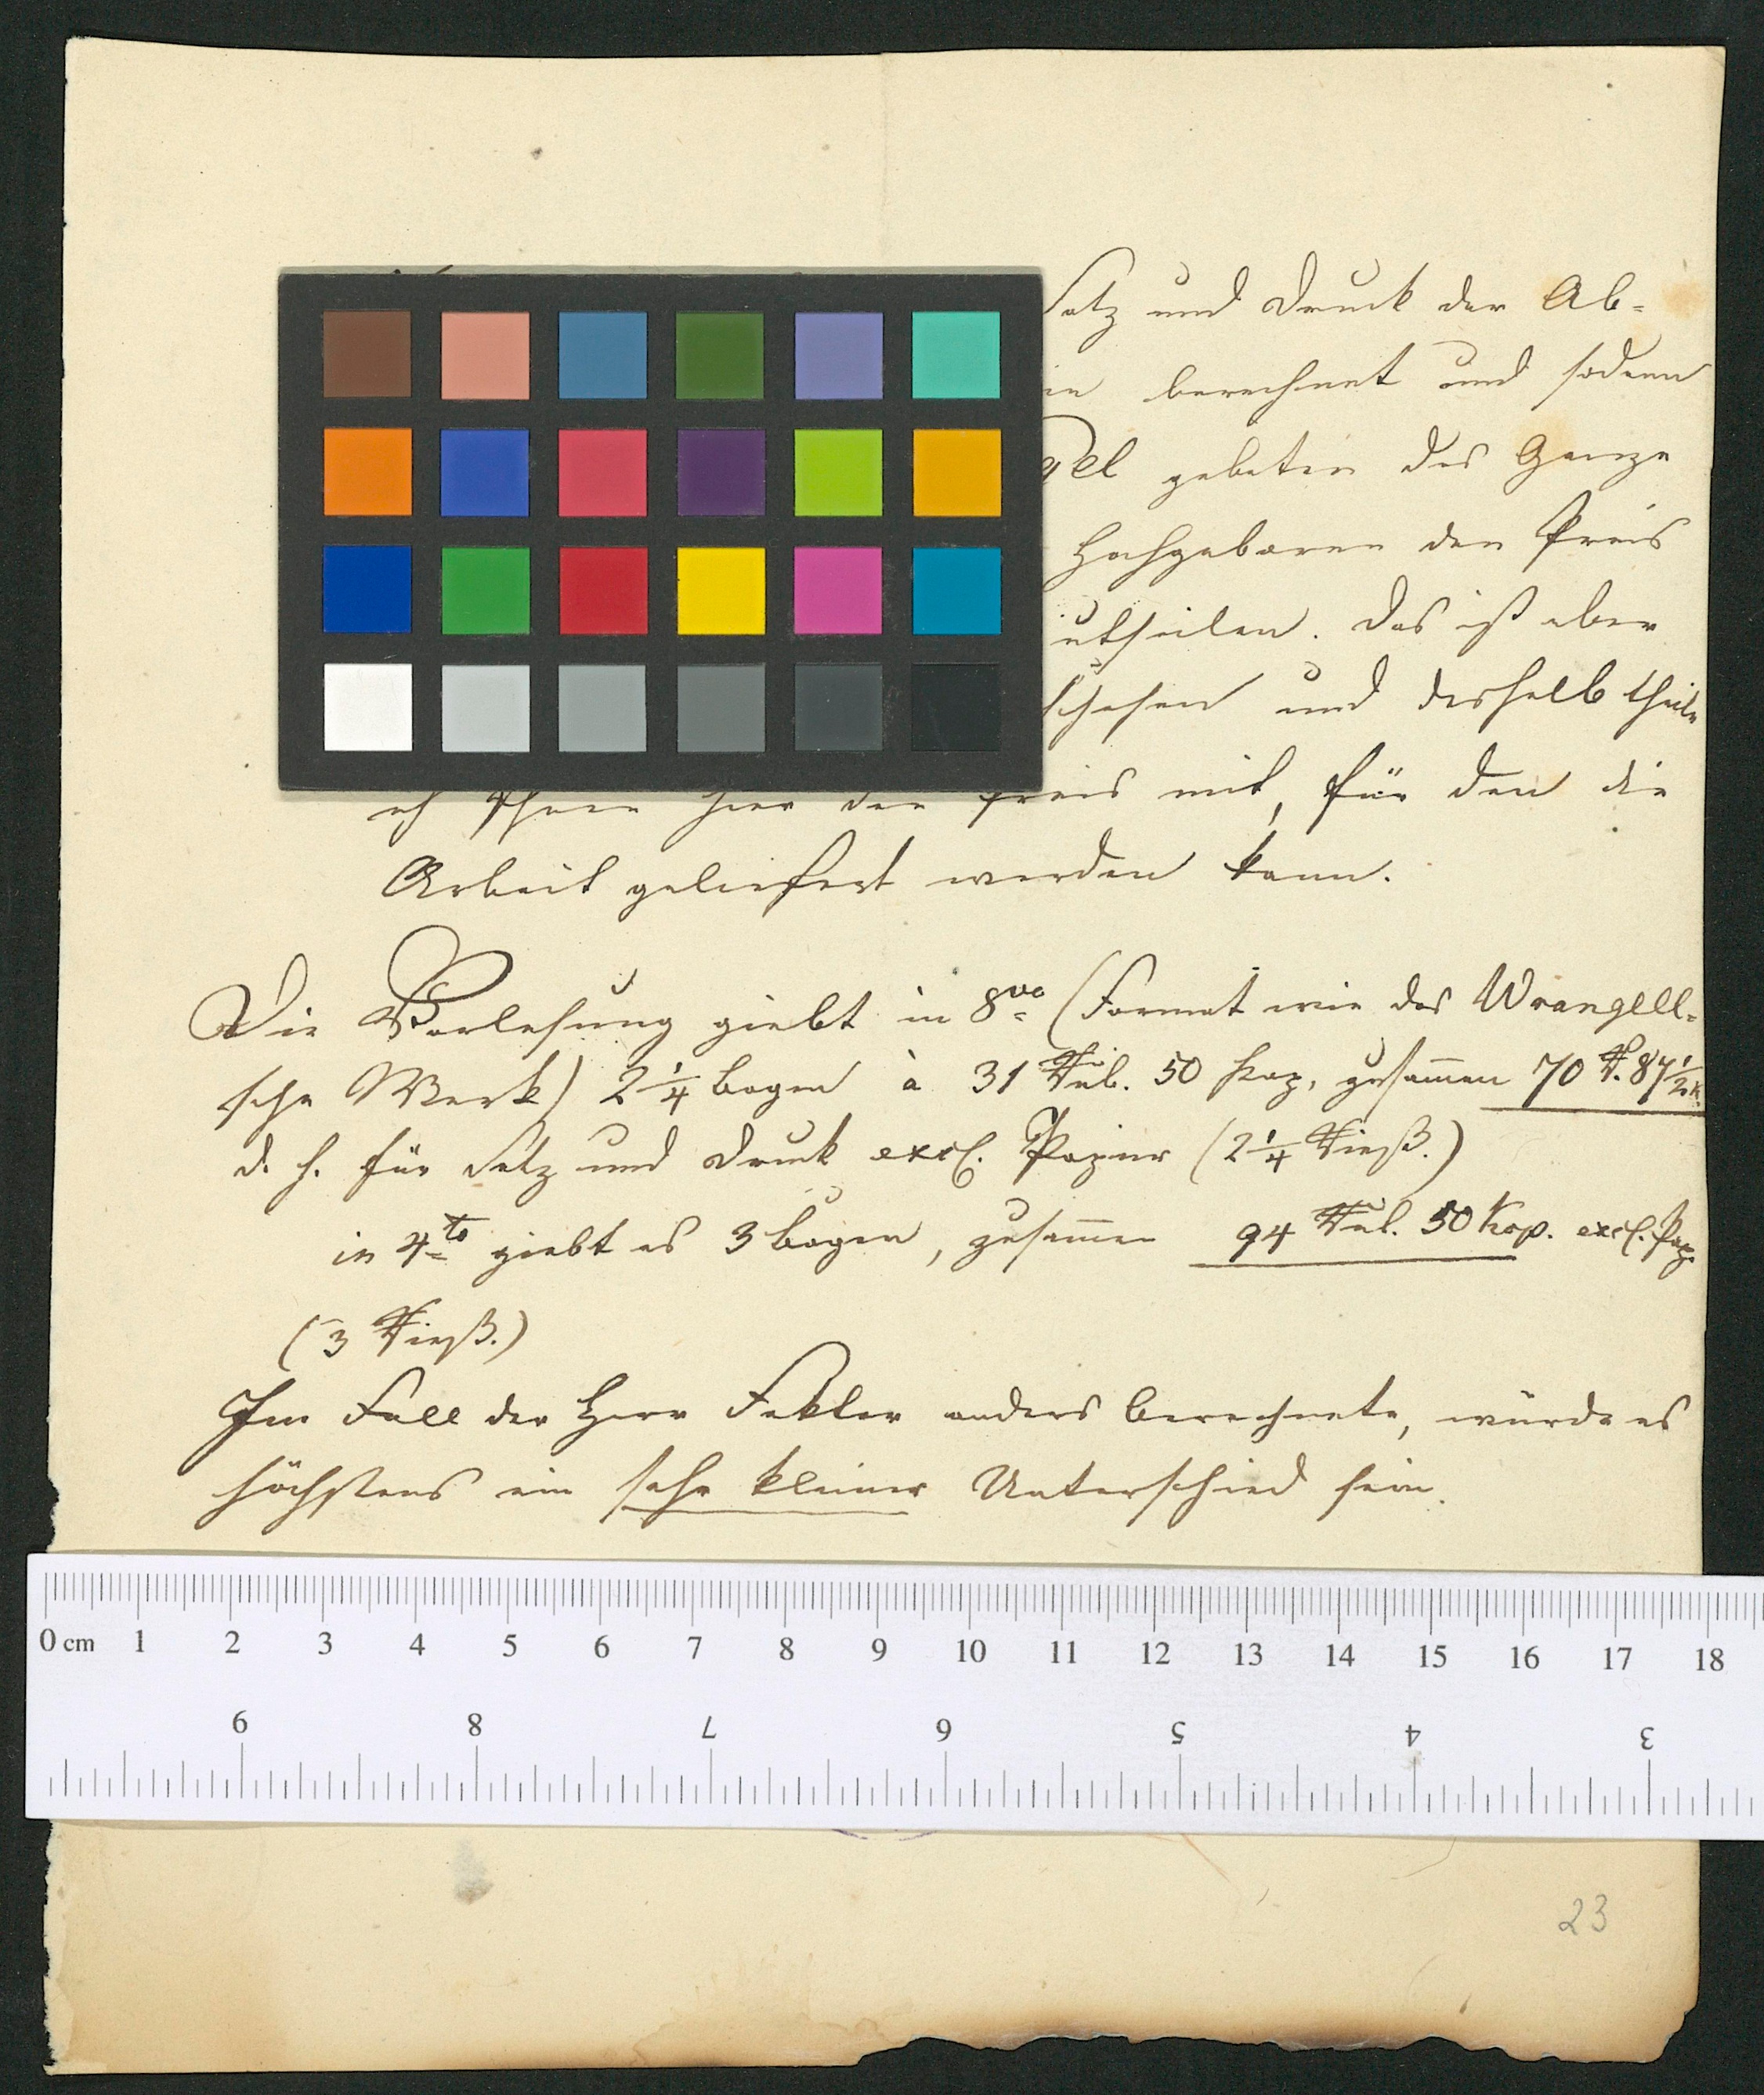 Satz und Druck der Ab-
berechnet und sodann
gebeten das Ganze
Hochgeboren den Preis
Das ist aber
und deshalb theile
ich Ihnen hier den Preis mit, für den die
Arbeit geliefert werden kann.
Die Vorlesung giebt in 8vo (Format wie das Wrangell-
sche Werk) 2 1/4 Bogen à 31 Rub. 50 Kop, zusam̄en 70 R. 87 1/2 K.
d. h. für Satz und Druck excl. Papier (2 1/4 Rieß.)
in 4to giebt es 3 Bogen, zusam̄en 94 Rub. 50 Kop. excl. Pap.
(3 Rieß.)
Im Fall der Herr Faktor anders berechnete, würde es
höchstens ein sehr kleiner Unterschied sein.
0 cm 1 2 3 4 5 6 7 8 9 10 11 12 13 14 15 16 17 18
9 8 7 6 5 4 3
23